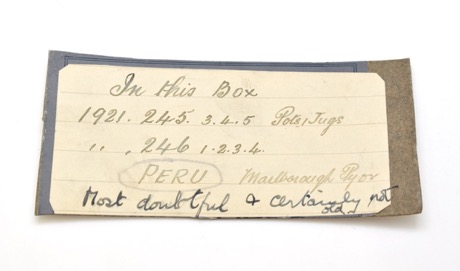 In this Box
1921. 245. 3.4.5 Pots, Jugs
" , 246 1.2.3.4.
PERU Marlborough Pryor
Most doubtful & certainly not
old